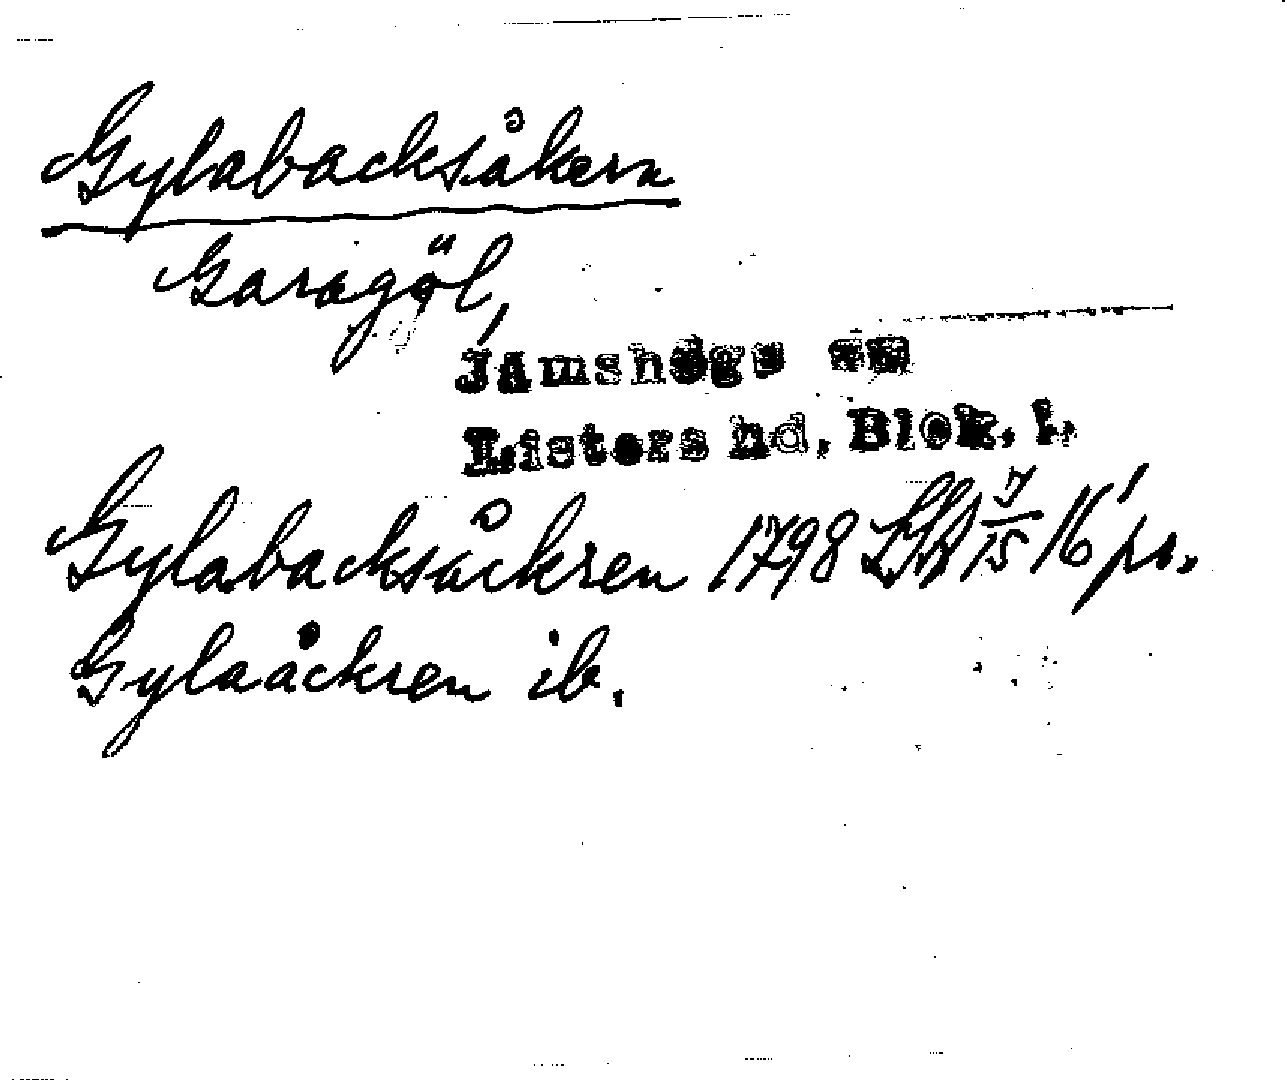 Gylabacksåkern
Garagöl,
Jämshögs sn
Listers hd, Blek. l.
Gylabacksåckren 1798 LSA 7/15 16' ps.
Gylaåckren ib.